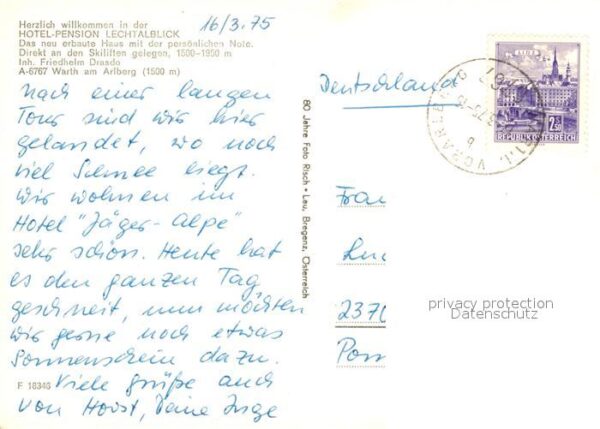 Herzlich willkommen in der
HOTEL-PENSION LECHTALBLICK
Das neu erbaute Haus mit der persönlichen Note.
Direkt an den Skiliften gelegen, 1500-1950 m
Inh. Friedhelm Drasdo
A-6767 Warth am Arlberg (1500 m)
16/3.75
Nach einer langen
Tour sind wir hier
gelandet, wo noch
viel Schnee liegt.
Wir wohnen im
Hotel "Jäger-Alpe"
sehr schön. Heute hat
es den ganzen Tag
geschneit, nun möchten
wir gerne noch etwas
Sonnenschein dazu.
Viele Grüße auch
von Horst, Deine Inge
F 18346
80 Jahre Foto Risch-Lau, Bregenz, Österreich
LINZ
2.50
REPUBLIK ÖSTERREICH
6767
VORARLB
Deutschland
Frau
2370
privacy protection
Datenschutz